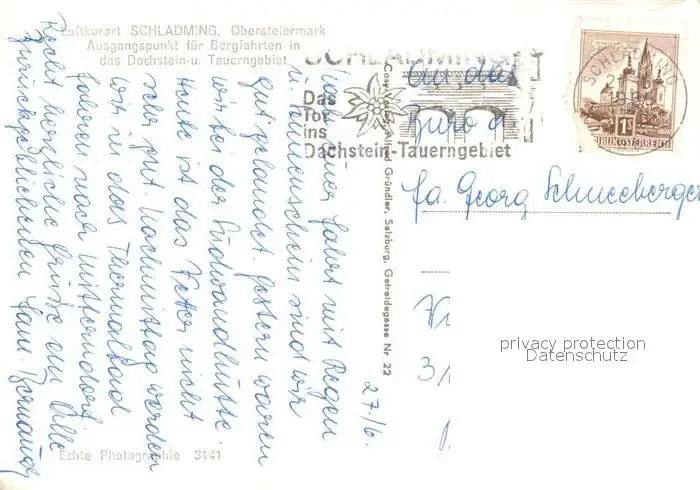 Luftkurort SCHLADMING, Obersteiermark
Ausgangspunkt für Bergfahrten in
das Dachstein-u. Tauerngebiet
SCHLADMING
Das
Tor
ins
Dachstein-Tauerngebiet
SCHLADMING
1 S
REPUBLIK ÖSTERREICH
An das
Büro d.
Fa. Georg Schneeberger
privacy protection
Datenschutz
Cosy-Verlag Alfred Gründler, Salzburg, Getreidegasse Nr 22
27./6.
Nach einer Fahrt mit Regen
u. Sonnenschein sind wir
gut gelandet. Gestern waren
wir bei der Südwandhütte.
Heute ist das Wetter nicht
sehr gut. Nachmittag werden
wir in das Thermalbad
fahren nach Mitterndorf.
Recht herzliche Grüße an Alle
Zurückgebliebenen Fam.
Echte Photographie 3141